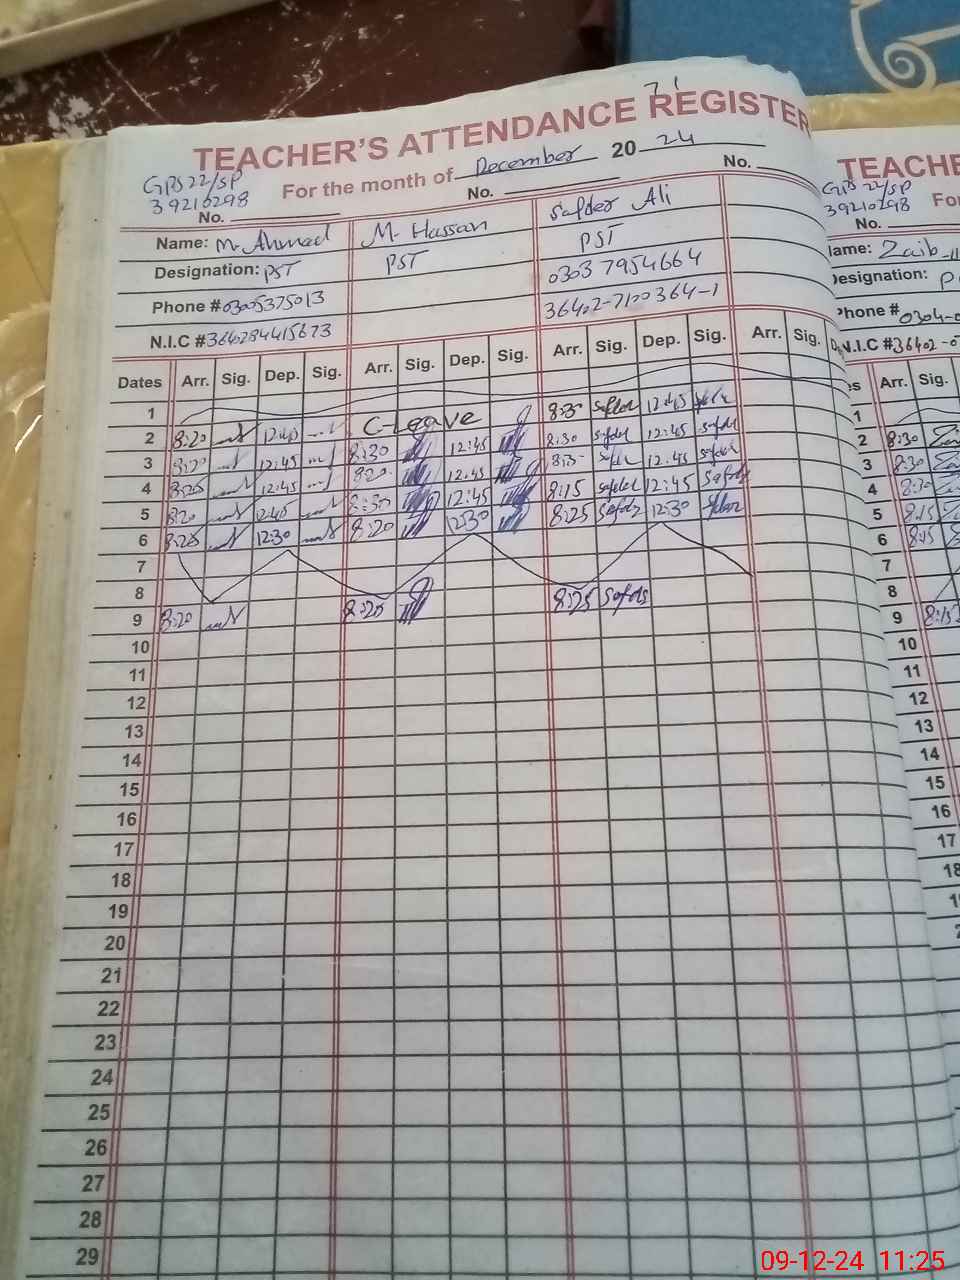 71
TEACHER'S ATTENDANCE REGISTER
GPS 22/SP
39210298
For the month of December 2024
No. No. No.
Name: M. Ahmad M. Hassan Safder Ali
Designation: PST PST PST
Phone # 03005375013 0303 7954664
N.I.C # 3640284415673 36402-7100364-1
Dates Arr. Sig. Dep. Sig. Arr. Sig. Dep. Sig. Arr. Sig. Dep. Sig. Arr. Sig.
1
2 8:20 12:45 C-Leave 8:30 safder 12:45 safder
3 8:20 12:45 8:30 12:45 8:30 safder 12:45 safder
4 8:25 12:45 8:20 12:45 8:35 safder 12:45 safder
5 8:20 12:45 8:30 12:45 8:15 safder 12:45 safder
6 8:25 12:30 8:20 12:30 8:25 safder 12:30 safder
7
8
9 8:20 8:20 8:25 safder
10
11
12
13
14
15
16
17
18
19
20
21
22
23
24
25
26
27
28
29
TEACHE
GPS 22/SP
39210298
Fo
No.
Name: Zaib
Designation: P
Phone # 0304-0
N.I.C # 36402-0
Arr. Sig.
1
2 8:30
3 8:30
4 8:30
5 8:15
6 8:15
7
8
9 8:15
10
11
12
13
14
15
16
17
18
09-12-24 11:25